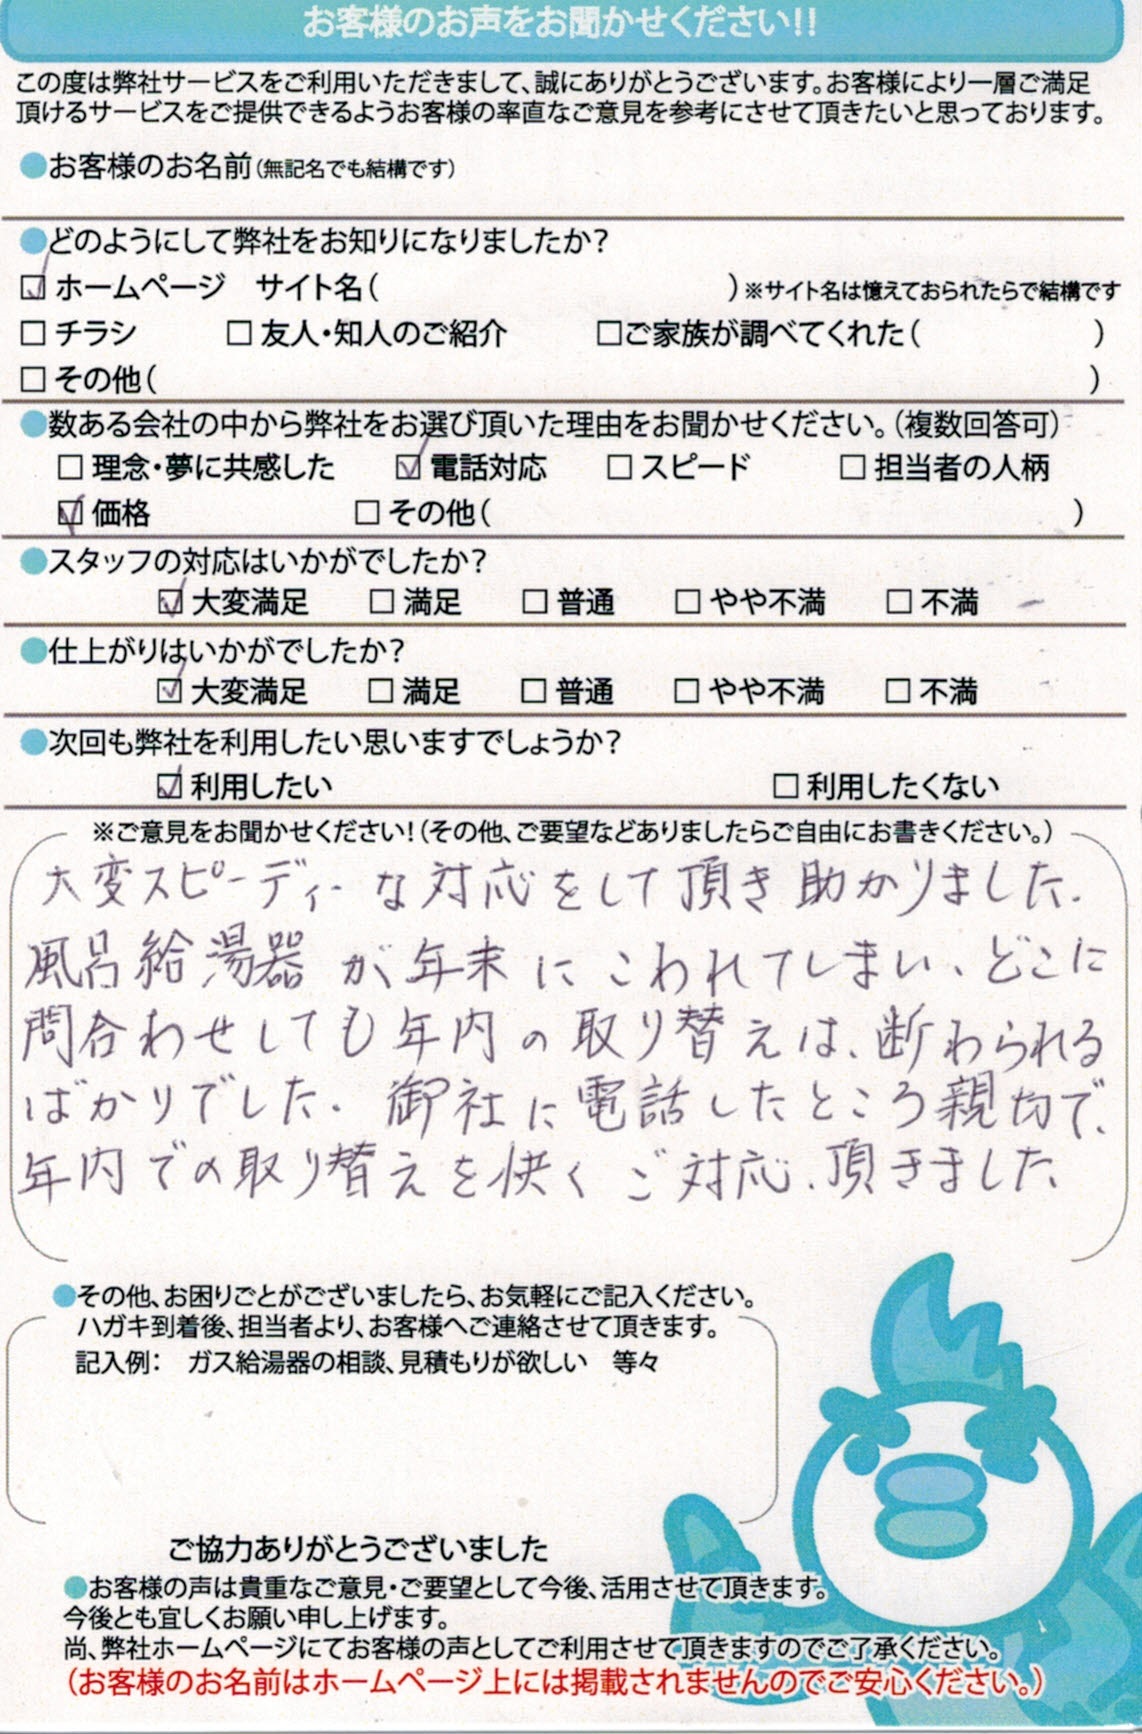 お客様のお声をお聞かせください!!
この度は弊社サービスをご利用いただきまして、誠にありがとうございます。お客様により一層ご満足
頂けるサービスをご提供できるようお客様の率直なご意見を参考にさせて頂きたいと思っております。
●お客様のお名前(無記名でも結構です)
●どのようにして弊社をお知りになりましたか?
☑ ホームページ サイト名( )※サイト名は憶えておられたらで結構です
□ チラシ □ 友人・知人のご紹介 □ご家族が調べてくれた( )
□ その他( )
●数ある会社の中から弊社をお選び頂いた理由をお聞かせください。(複数回答可)
□ 理念・夢に共感した ☑ 電話対応 □ スピード □ 担当者の人柄
☑ 価格 □ その他( )
●スタッフの対応はいかがでしたか?
☑ 大変満足 □ 満足 □ 普通 □ やや不満 □ 不満
●仕上がりはいかがでしたか?
☑ 大変満足 □ 満足 □ 普通 □ やや不満 □ 不満
●次回も弊社を利用したい思いますでしょうか?
☑ 利用したい □ 利用したくない
※ご意見をお聞かせください!(その他、ご要望などありましたらご自由にお書きください。)
大変スピーディーな対応をして頂き助かりました.
風呂給湯器が年末にこわれてしまい、どこに
問合わせしても年内の取り替えは、断わられる
ばかりでした. 御社に電話したところ親切で、
年内での取り替えを快くご対応、頂きました.
●その他、お困りごとがございましたら、お気軽にご記入ください。
ハガキ到着後、担当者より、お客様へご連絡させて頂きます。
記入例: ガス給湯器の相談、見積もりが欲しい 等々
ご協力ありがとうございました
●お客様の声は貴重なご意見・ご要望として今後、活用させて頂きます。
今後とも宜しくお願い申し上げます。
尚、弊社ホームページにてお客様の声としてご利用させて頂きますのでご了承ください。
(お客様のお名前はホームページ上には掲載されませんのでご安心ください。)